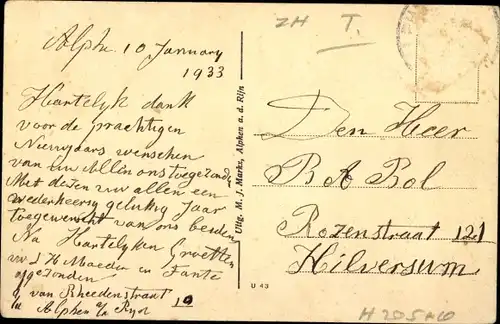 Alphe 10 January
1933
Hartelyk dank
voor de prachtigen
Nieuwjaars wenschen
van uw Allen ons toegezonden
Met dezen uw allen een
wederkeerig gelukkig Jaar
toegewenscht van ons beiden
Na Hartelyken Groetten
uw J H Maeden en Tante
afgezonden
v/ van Rheedenstraat 19
Alphen a/n Ryn
Uitg. M. J. Markx, Alphen a. d. Rijn
U 43
ZH T.
Den Heer
B A Bol
Rozenstraat 121
Hilversum